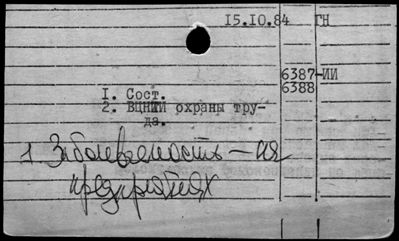 15.10.84 ГН
6387-ИИ
6388
1. Сост.
2. ВЦНИИ охраны тру-
да.
1 Заболеваемость — на
предприятиях